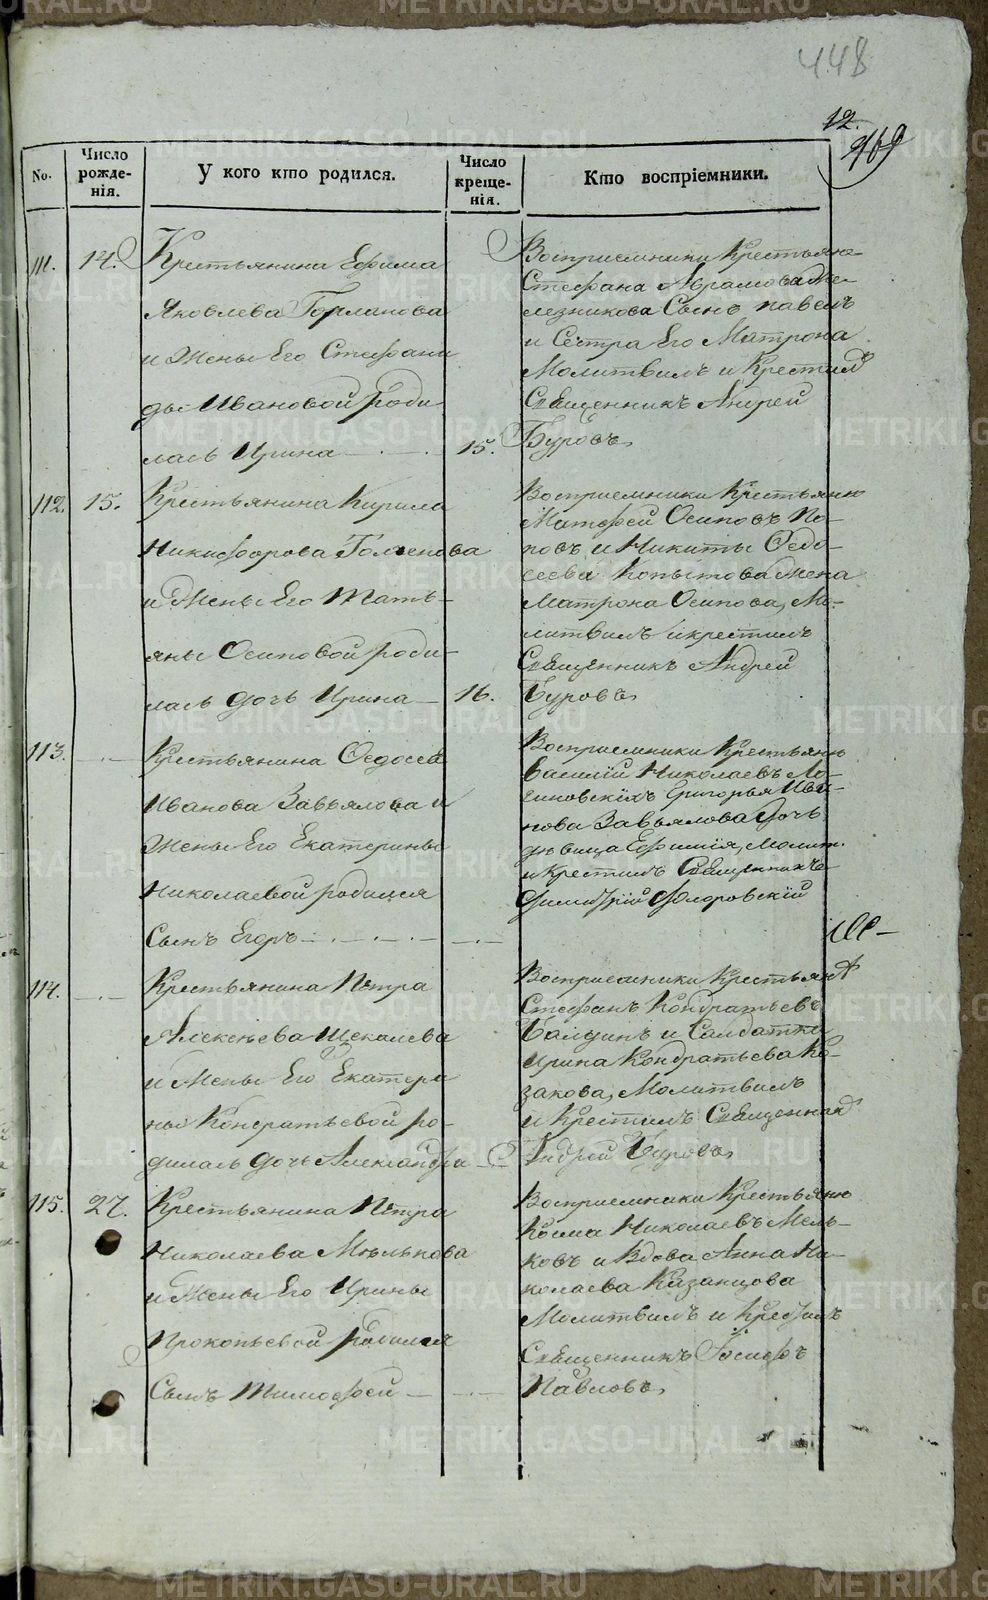 448
12.
469
No.
Число рожде-нія.
У кого кто родился.
Число креще-нія.
Кто воспріемники.
111.
14.
Крестьянина Ефима
Яковлева Горланова
и Жены Его Стефани
ды Ивановой роди
лась Ирина
15.
Восприемники Крестьяне
Стефана Аврамова Же-
лезникова Сынъ павелъ
и Сестра Его Матрона
Молитвилъ и Крестилъ
Священникъ Андрей
Буровъ
112.
15.
Крестьянина Кирила
Никифорова
и Жены Его Тать-
яны Осиповой роди-
лась дочь Ирина
16.
Восприемники Крестьяне
Матфей Осиповъ По-
повъ и Никиты Федо-
сеева Копытова жена
Матрона Осипова, Мо-
литвилъ и крестилъ
Священникъ Андрей
Буровъ
113.
Крестьянина Федосея
Иванова Завьялова и
Жены Его Екатерины
Николаевой родился
Сынъ Егоръ
Восприемники Крестьяне
Василій Николаевъ
Григорья Ива-
нова Завьялова дочь
дѣвица Ефимія, Молит.
и крестилъ Священникъ
Димитрій Флоровскій
114.
Крестьянина Петра
Алексѣева Щекалева
и Жены Его Екатери
ны Кондратьевой ро-
дилась дочь Александра
Восприемники Крестьян
Стефанъ Кондратьевъ
Балдинъ и Салдатка
Ирина Кондратьева Ко-
закова, Молитвилъ
и Крестилъ Священникъ
Андрей Буровъ
115.
27.
Крестьянина Петра
Николаева Мѣлькова
и Жены Его Ирины
Прокопьевой родился
Сынъ Тимофей
Восприемники Крестьяне
Косма Николаевъ Мель-
ковъ и Вдова Анна Ни-
колаева Казанцова
Молитвилъ и Крестилъ
Священникъ Іосифъ
Павловъ
METRIKI.GASO-URAL.RU